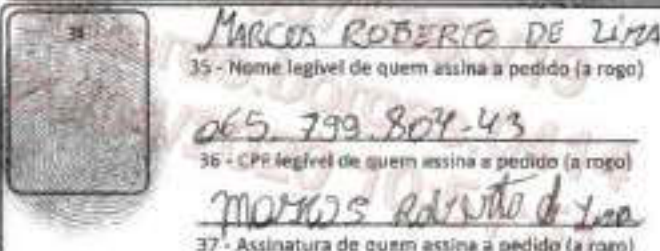 34
MARCOS ROBERTO DE LIMA
35 - Nome legível de quem assina a pedido (a rogo)
065.799.804-43
36 - CPF legível de quem assina a pedido (a rogo)
Marcos Roberto d Lima
37 - Assinatura de quem assina a pedido (a rogo)